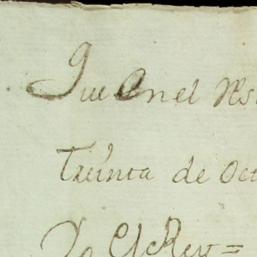 Que en el
Treinta de Oct
Yo El Rey =